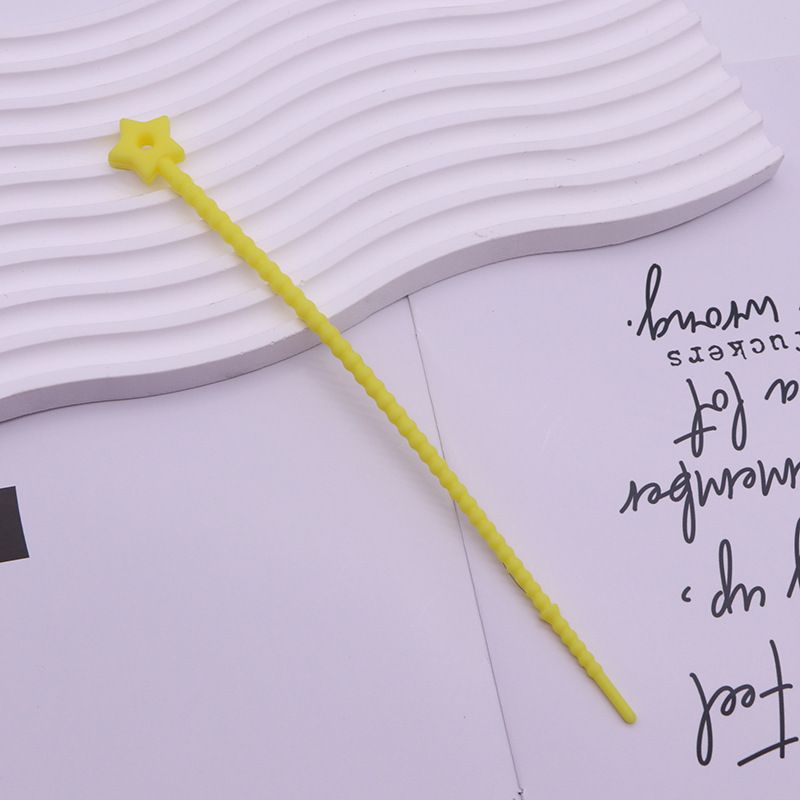 Feel
up,
member
a lot
ruckers
wrong.